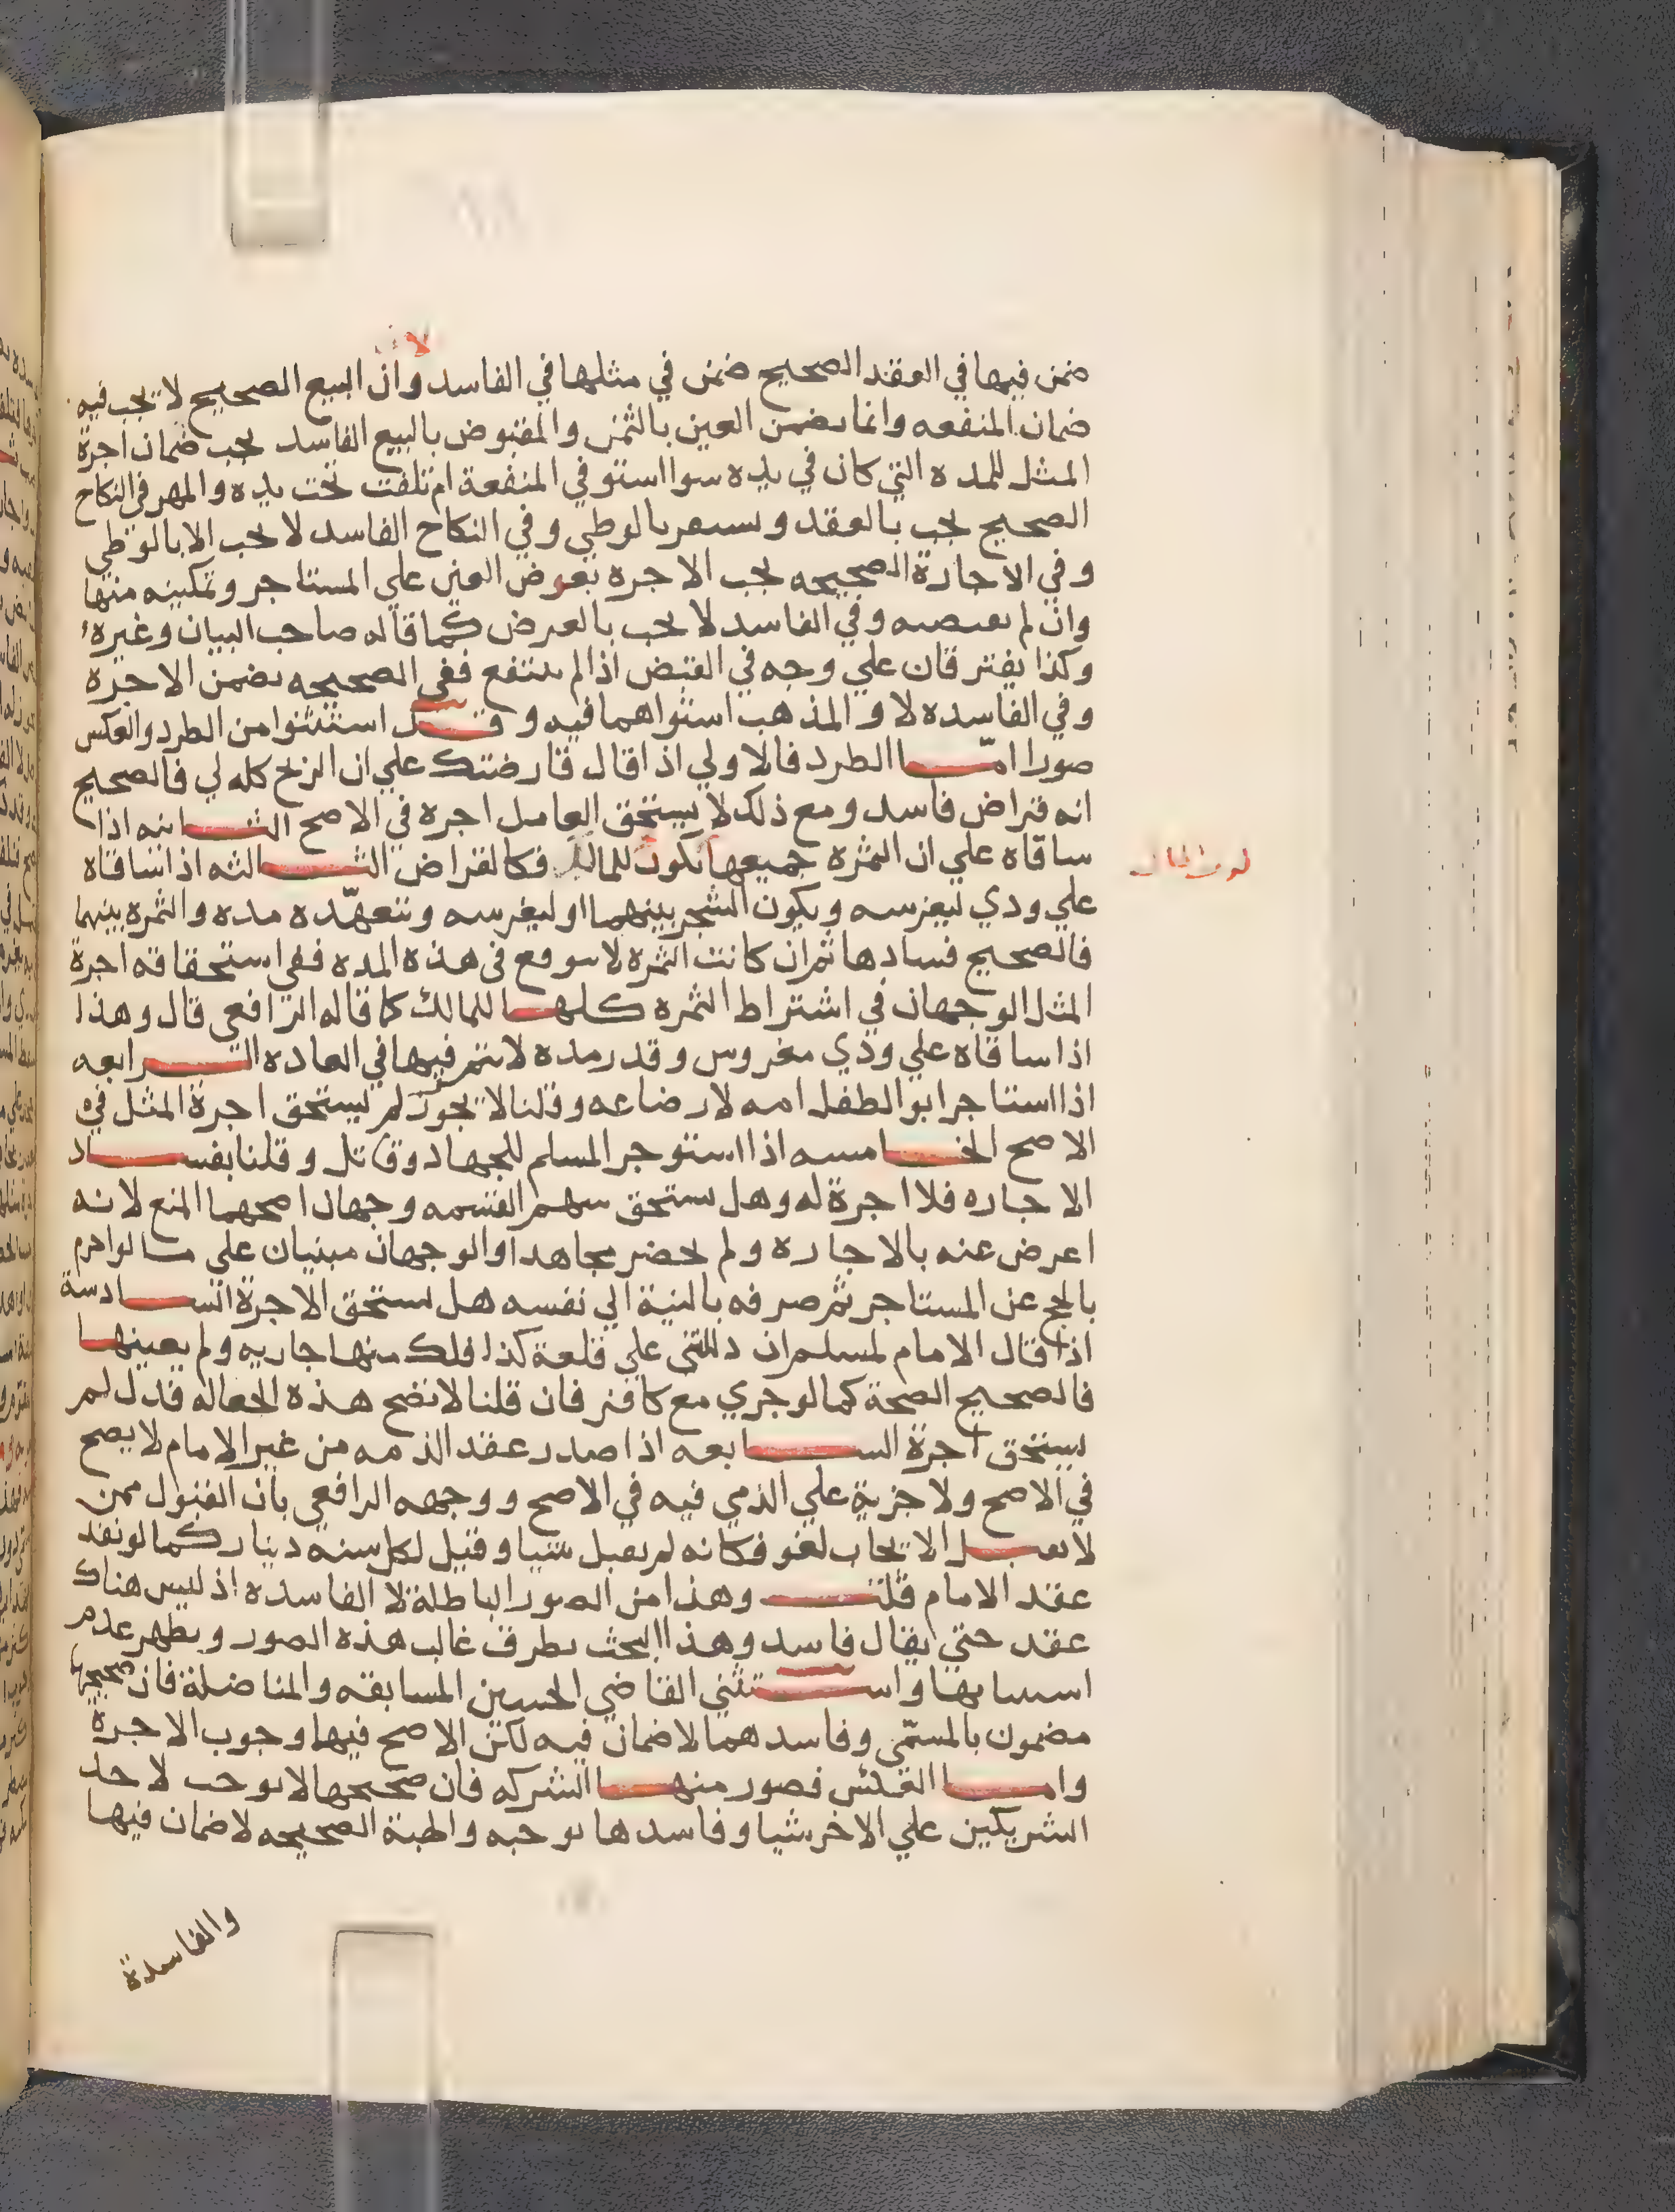 لا
ضمن فيها في العقد الصحيح ضمن في مثلها في الفاسد وان البيع الصحيح لا يجب فيه
ضمان المنفعه وانما يضمن العين بالثمن والمقبوض بالبيع الفاسد يجب ضمان اجرة
المثل للمده التي كان في يده سوا استوفي المنفعة ام تلفت تحت يده والمهر في النكاح
الصحيح يجب بالعقد ويستقر بالوطي وفي النكاح الفاسد لا يجب الا بالوطي
وفي الاجارة الصحيحه يجب الاجره بعرض العين علي المستاجر وتمكينه منها
وان لم يقبضه وفي الفاسد لا يجب بالعرض كما قاله صاحب البيان وغيره
وكذا يفترقان علي وجه في القبض اذا لم ينتفع ففي الصحيحه يضمن الاجره
وفي الفاسده لا والمذهب استواهما فيه وقد استثنوا من الطرد والعكس
صورا اما الطرد فالاولي اذا قال قارضتك علي ان الربح كله لي فالصحيح
انه قراض فاسد ومع ذلك لا يستحق العامل اجره في الاصح الثانيه اذا
ساقاه علي ان الثمره جميعها تكون للمالك فكالقراض الثالثه اذا ساقاه
علي ودي ليغرسه ويكون الشجر بينهما او ليغرسه ويتعهده مده والثمره بينهما
فالصحيح فسادها ثم ان كانت الثمره لا تتوقع في هذه المده ففي استحقاقه اجرة
المثل الوجهان في اشتراط الثمره كلها للمالك كما قاله الرافعي قال وهذا
اذا ساقاه علي ودي مغروس وقدر مده لا تثمر فيها في العاده الرابعه
اذا استاجر ابو الطفل امه لارضاعه وقلنا لا يجوز لم يستحق اجرة المثل في
الاصح الخامسه اذا استوجر المسلم للجهاد وقاتل وقلنا بفساد
الاجاره فلا اجرة له وهل يستحق سهم القسمه وجهان اصحهما المنع لانه
اعرض عنه بالاجاره ولم يحضر مجاهدا والوجهان مبنيان علي ما لو احرم
بالحج عن المستاجر ثم صرفه بالنية الي نفسه هل يستحق الاجرة السادسة
اذا قال الامام لمسلم ان دللتني علي قلعة كذا فلك منها جاريه ولم يعينها
فالصحيح الصحة كما لو جري مع كافر فان قلنا لا تصح هذه الجعاله فدل لم
يستحق اجرة السابعه اذا صدر عقد الذمه من غير الامام لا يصح
في الاصح ولا جزية علي الذمي فيه في الاصح ووجهه الرافعي بان القبول ممن
لا يقبل الايجاب لغو فكانه لم يقبل شيا وقيل لكل سنه دينار كما لو نفد
عقد الامام قلت وهذا من الصور الباطلة لا الفاسده اذ ليس هناك
عقد حتي يقال فاسد وهذا البحث يطرق غالب هذه الصور ويظهر عدم
استثنايها واستثني القاضي الحسين المسابقه والمناضلة فان صحيحها
مضمون بالمسمي وفاسدهما لا ضمان فيه لكن الاصح فيها وجوب الاجرة
واما العكس فصور منها الشركه فان صحيحها لا يوجب لاحد
الشريكين علي الاخر شيا وفاسدها يوجبه والهبة الصحيحه لا ضمان فيها
والفاسدة